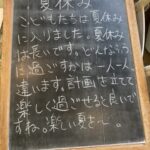 夏休み
こどもたちは夏休み
に入りました。夏休み
は長いです。どんなふう
に過ごすかは一人一人
違います。計画を立てて
楽しく過ごせると良いで
すね。楽しい夏を〜。